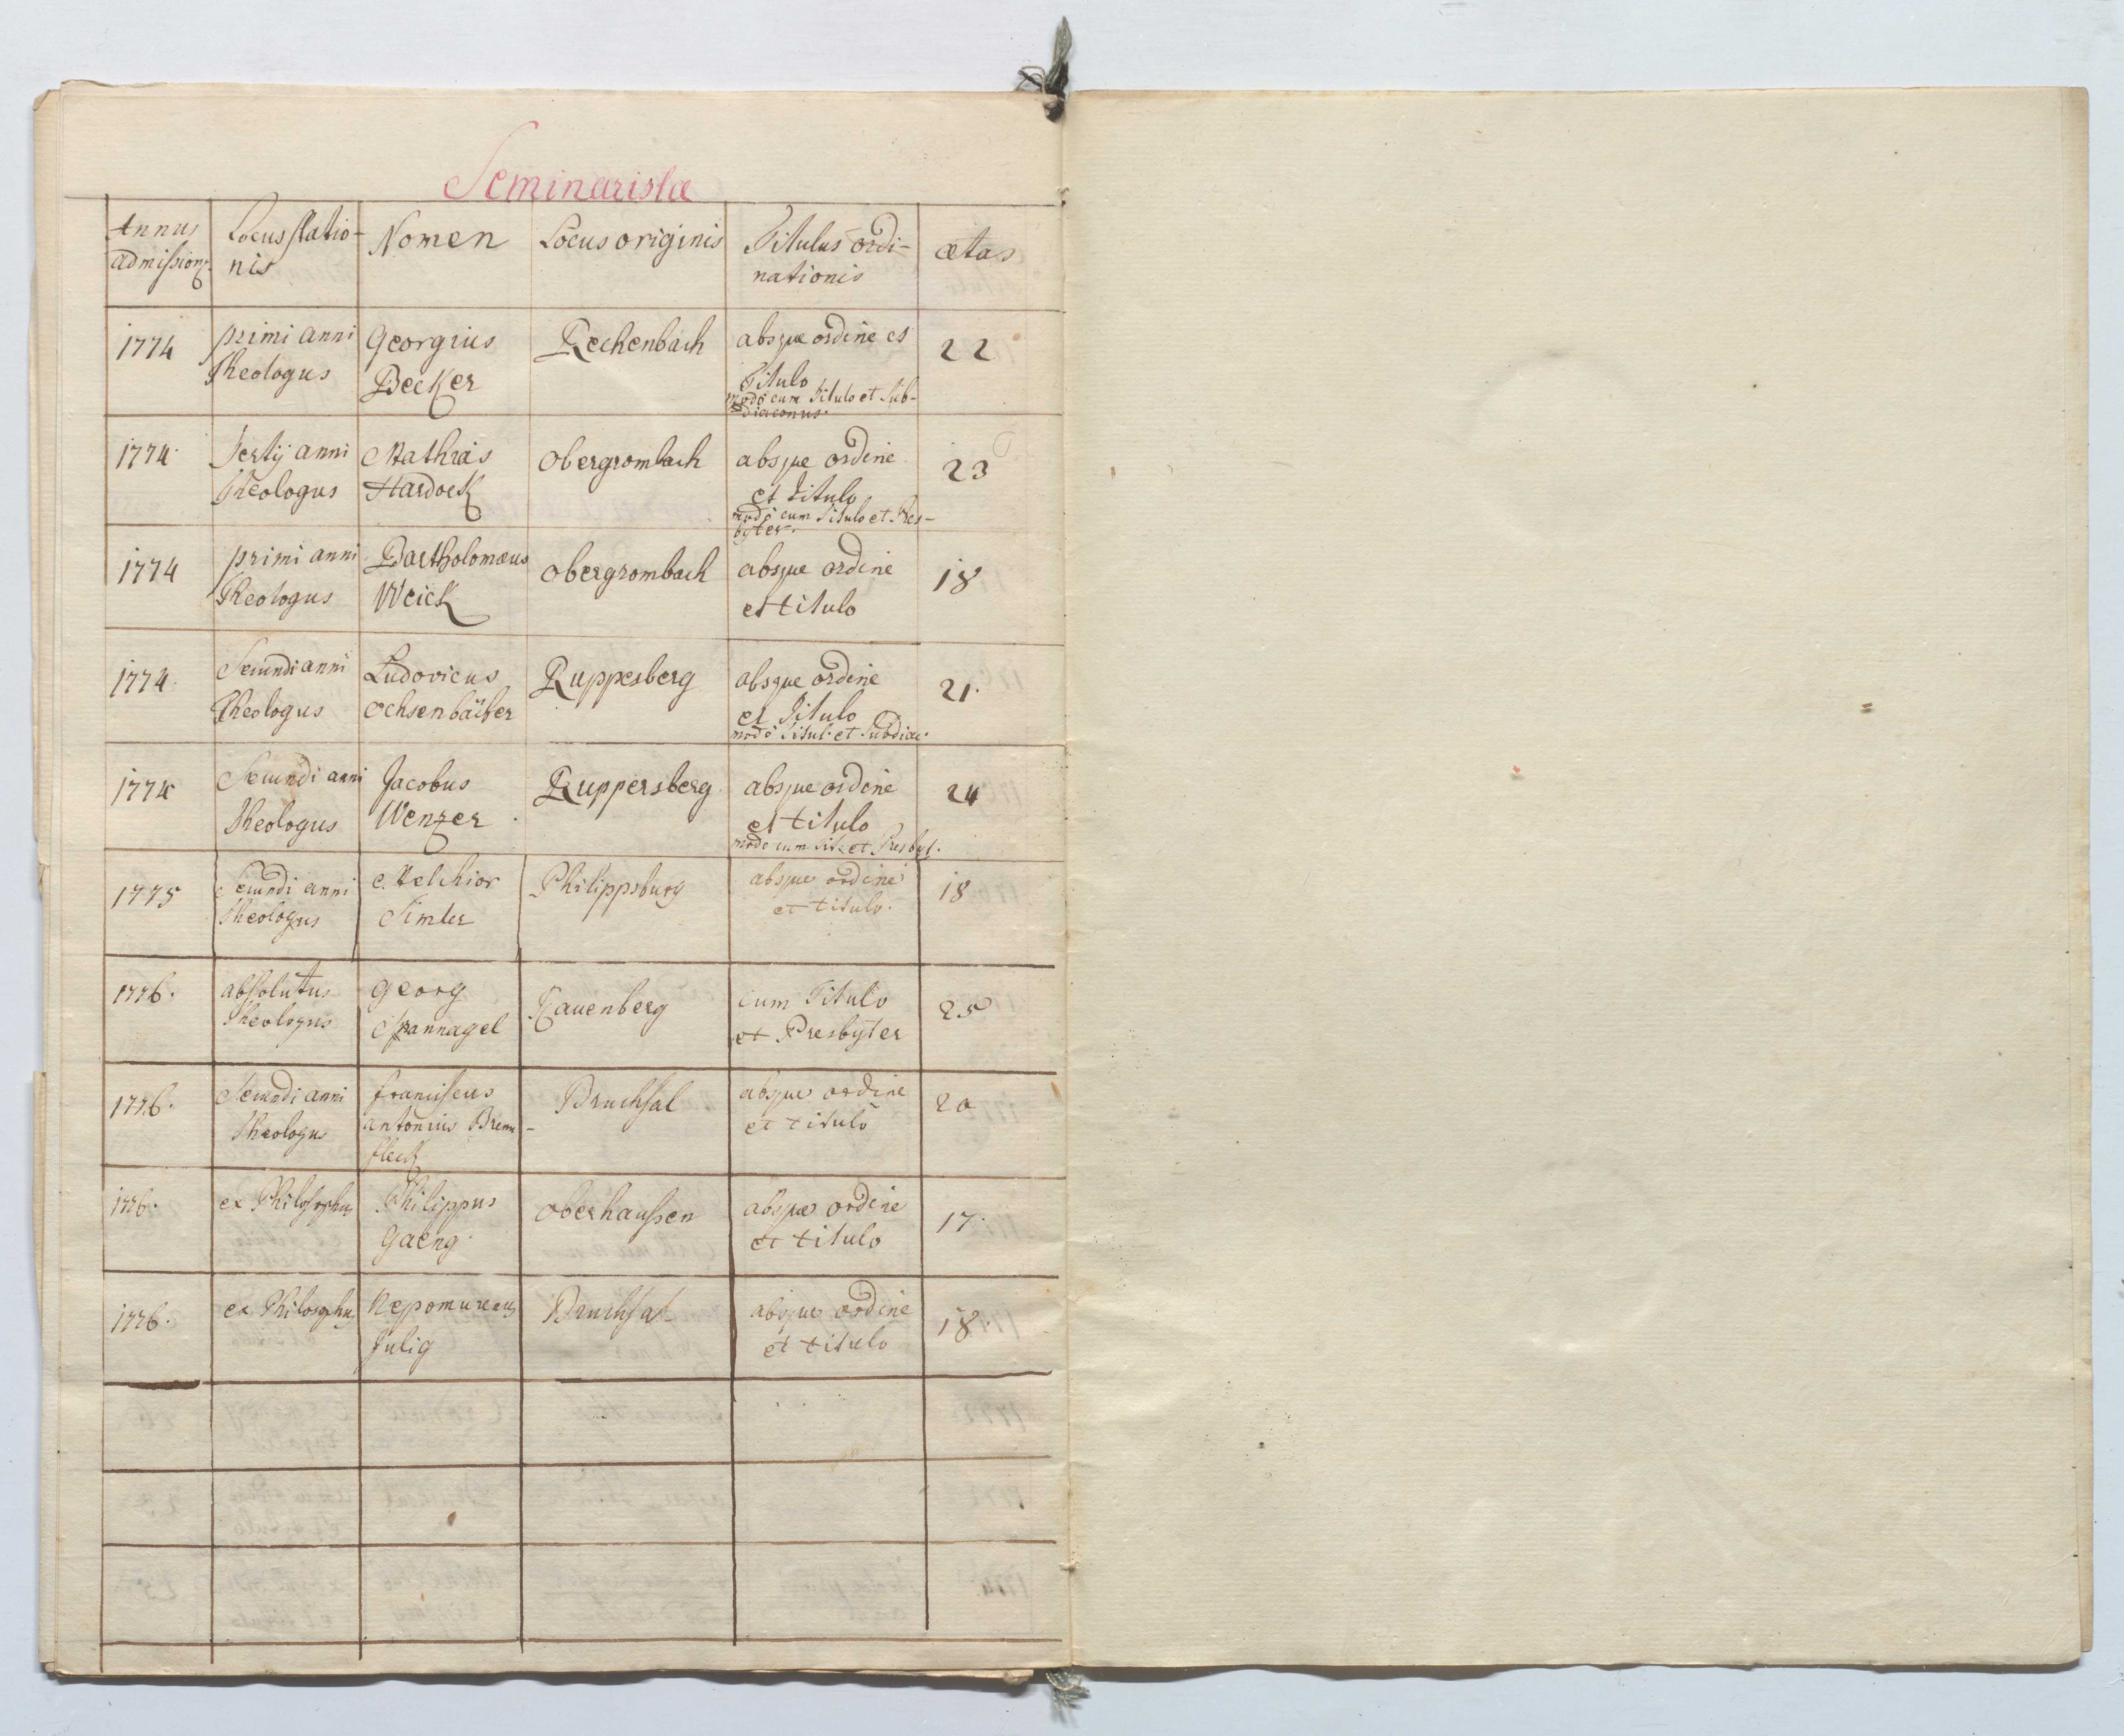 Seminaristæ
Annus admissionis
Locus statio-
nis
Nomen
Locus originis
Titulus ordi-
nationis
ætas
1774
primi anni
Theologus
Georgius
Becker
Rechenbach
absque ordine et
Titulo
modo cum Titulo et Sub-
diaconus.
22
1774
Tertij anni
Theologus
Mathias
Hardock
Obergrombach
absque ordine
et titulo
modo cum Titulo et Pres-
byter.
23
1774
primi anni
Theologus
Bartholomæus
Weick
Obergrombach
absque ordine
et titulo
18
1774
Secundi anni
Theologus
Ludovicus
Ochsenbächer
Ruppesberg
absque ordine
et Titulo
modo Titul. et Subdiac.
21.
1774
Secundi anni
Theologus
Jacobus
Wenzer
Ruppersberg
absque ordine
et titulo
modo cum Tit. et Presbyt.
24
1775
Secundi anni
Theologus
Melchior
Simler
Philippsburg
absque ordine
et titulo.
18
1776.
absolutus
Theologus
Georg
Spannagel
Rauenberg
cum Titulo
et Presbyter
25
1776.
Secundi anni
Theologus
Franciscus
Antonius
fleck
Bruchsal
absque ordine
et titulo
20
1776.
ex Philosophus
Philippus
Gaeng.
Oberhausen
absque ordine
et titulo
17.
1776.
ex Philosophus
Nepomucenus
Julig
Bruchsal
absque ordine
et titulo
18.